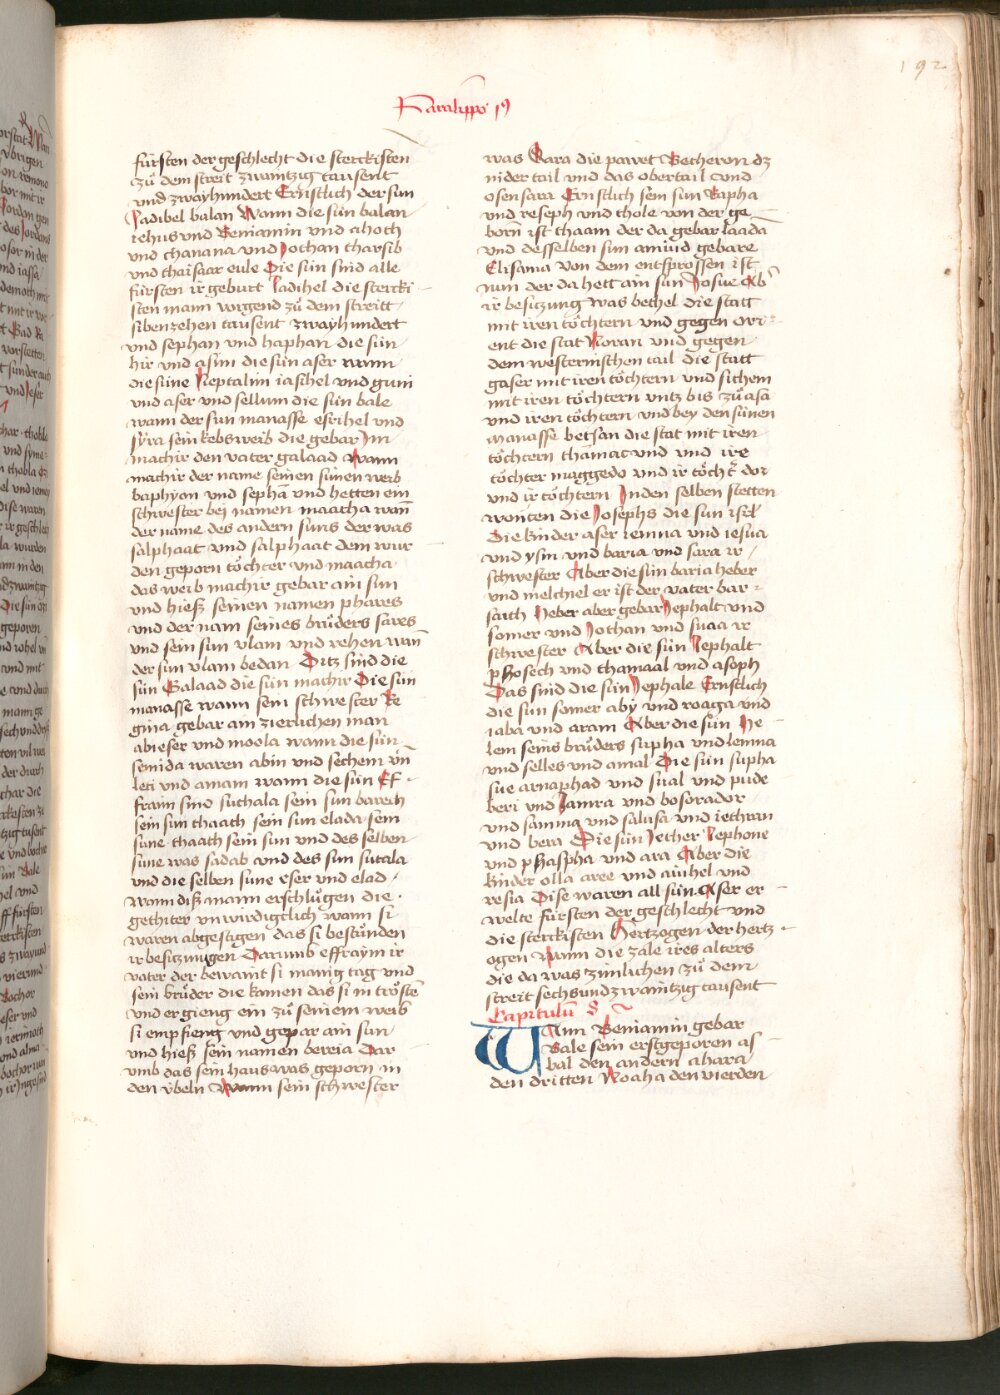 192
Paralippo 19
fürsten der geschlecht die sterckisten
zů dem streit zwaintzig tausent
und zwayhundert Ernstlich der sun
Jadibel balan Wann die sün balan
iehus und Beniamin und ahoth
und chanana und Jothan tharsib
und thaisaar eule Die sün sind alle
fürsten ir geburt Jadihel die stercki
sten mann vorgend zů dem streitt
sibenzehen tausent zwayhundert
und sephan und haphan die sün
hir und asim die sün aser wann
die süne Neptalim iasihel und guni
und aser und sellum die sün bale
wann der sun manasse esrihel und
syra sein kebsweib die gebar Im
machir den vater galaad Wann
machir der name seinen sünen weib
haphyan und sephan und hetten ein
schwester bej namen maacha wan
der name des andern suns der was
salphaat und salphaat dem wur
den geporn töchter und maacha
das weib machir gebar ain sun
und hieß seinen namen phares
und der nam seines brůders sares
und sein sun vlam und rehen wan
der sun vlam bedan Ditz sind die
sün Galaad die sün machir Die sün
manasse wann sein schwester Re
gina gebar am zierlichen man
abieser und moola wann die sün
semida waren abin und sechem vn
leci und amam wann die sün Ef
fraim sind suthala sein sun bareth
sein sun thaath sein sun elada sein
sune thaath sein sun und des selben
sune was sadab und des sun sutala
und die selben sune eser und elad
wann diß mann erschlůgen die
gethiter unwirdigclich wann si
waren abgestigen das si bestünden
ir besitzungen Darumb effraym ir
vater der bewaint si manig tag und
sein brüder die kamen das si in trösten
und er gieng ein zů seinem weib
si empfieng und gepar ain sun
und hieß sein namen bereia Dar
umb das sein haus was geporn in
den übeln Wann sein schwester
was Sara die pawet Betheron dz
nider tail und das obertail und
osensara Ernstlich sein sun Rapha
und reseph und thole von der ge
born ist thaam der da gebar laada
und desselben sun amiud gebare
Elisama von dem entsprossen ist
nun der da hett ain sun Josue Ab
ir besitzung was bethel die statt
mit iren töchtern und gegen ori
ent die stat Noran und gegen
dem westernischen tail die statt
gaser mit iren töchtern und sichem
mit iren töchtern untz bis zů asa
und iren töchtern und bey den sünen
manasse betsan die stat mit iren
töchtern thanac und und ire
töchter maggedo und ir töcht dor
und ir töchtern Inden selben stetten
wonten die Josephs die sun isrl
Die kinder aser iemna und iesua
und ysui und baria und sara ir
schwester Aber die sün baria heber
und melchiel er ist der vater bar
saith Heber aber gebar Jephalt und
somer und Jothan und suaa ir
schwester Aber die sün Jephalt
phosech und thamaal und asoph
Das sind die sün Jephale Ernstlich
die sun somer aby und roaga und
iaba und aram Aber die sün He
lem seins brůders supha und iemna
und selles und amal Die sün supha
sue arnaphad und sual und pude
beri und Jamra und bosorador
und samma und salusa und iethran
und bera Die sün Jether Jephone
und phaspha und ara Aber die
kinder olla aree und anihel und
resia Dise waren all sün Aser er
welte fürsten der geschlecht und
die sterckisten Hertzogen der hertz
ogen Wann die zale ires alters
die da was zimlichen zů dem
streit sechsundzwaintzig tausent
Capitulu 8
Wann Beniamin gebar
Bale sein erstgeporen as
bal den andern ahara
den dritten Noaha den vierden